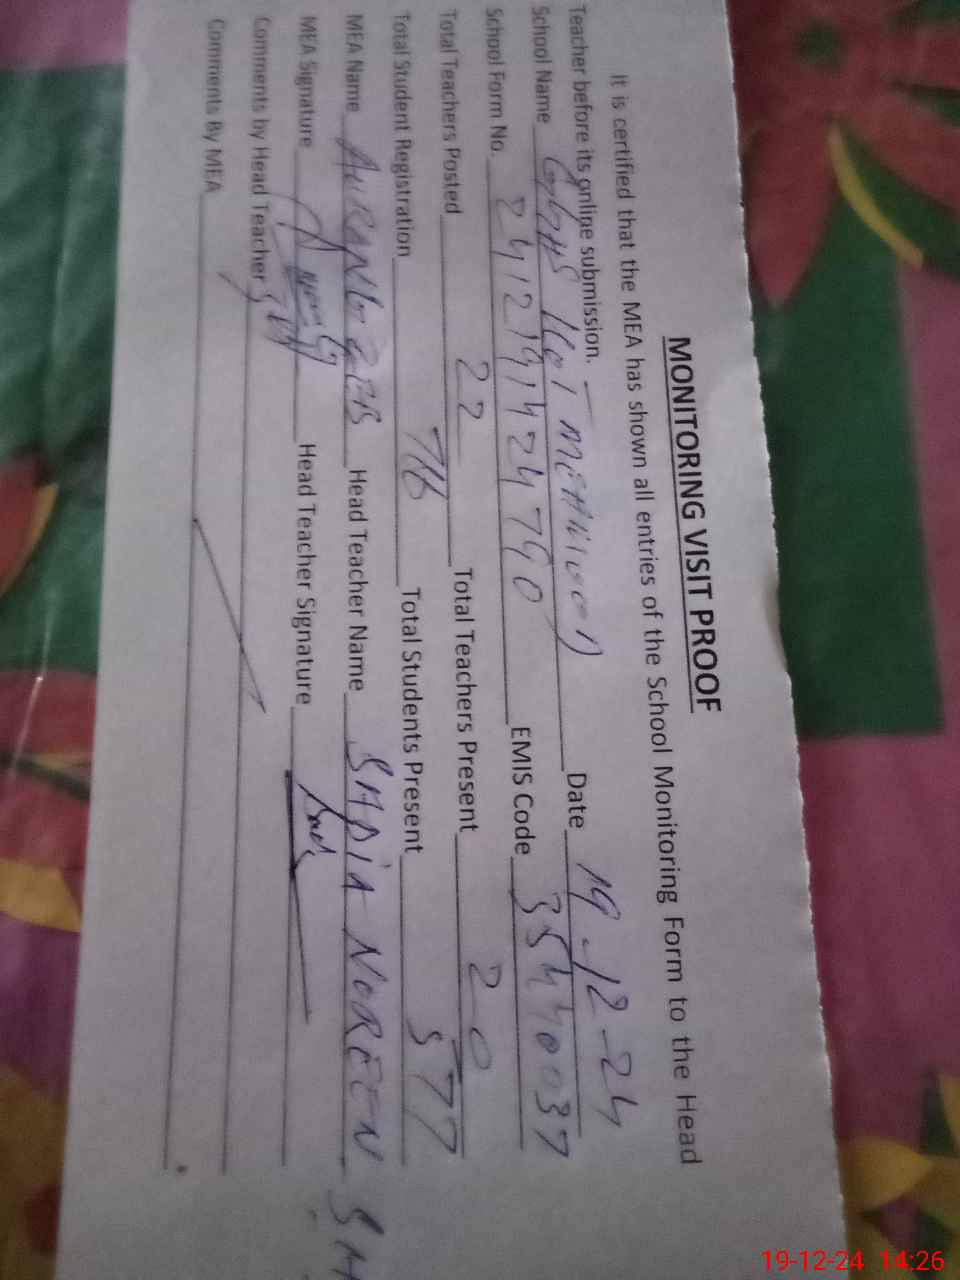 MONITORING VISIT PROOF
It is certified that the MEA has shown all entries of the School Monitoring Form to the Head
Teacher before its online submission.
School Name Date 19-12-24
School Form No. EMIS Code 35440037
Total Teachers Posted 22 Total Teachers Present 20
Total Student Registration 716 Total Students Present 577
MEA Name AURANGZEB Head Teacher Name SADIA NOREEN
MEA Signature Head Teacher Signature
Comments by Head Teacher
Comments By MEA
19-12-24 14:26